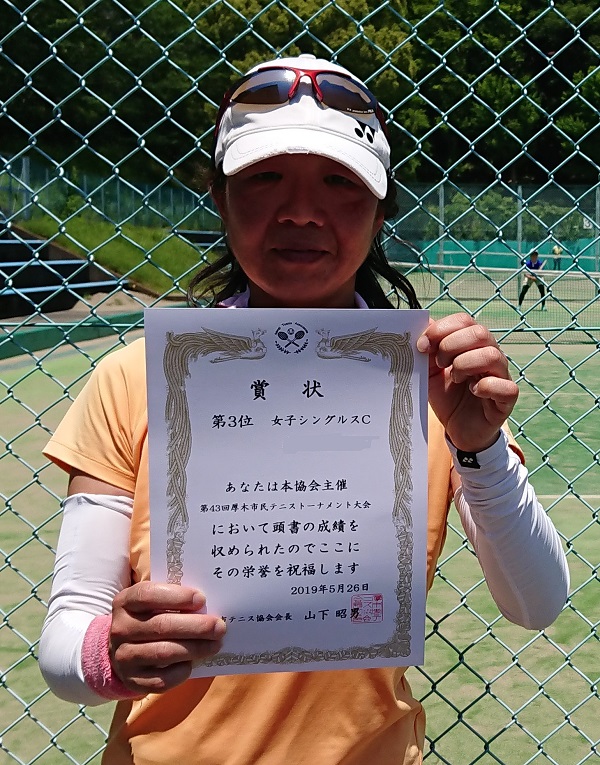 賞状
第3位 女子シングルスC
あなたは本協会主催
第43回厚木市民テニストーナメント大会
において頭書の成績を
収められたのでここに
その栄誉を祝福します
2019年5月26日
市テニス協会会長 山下昭男